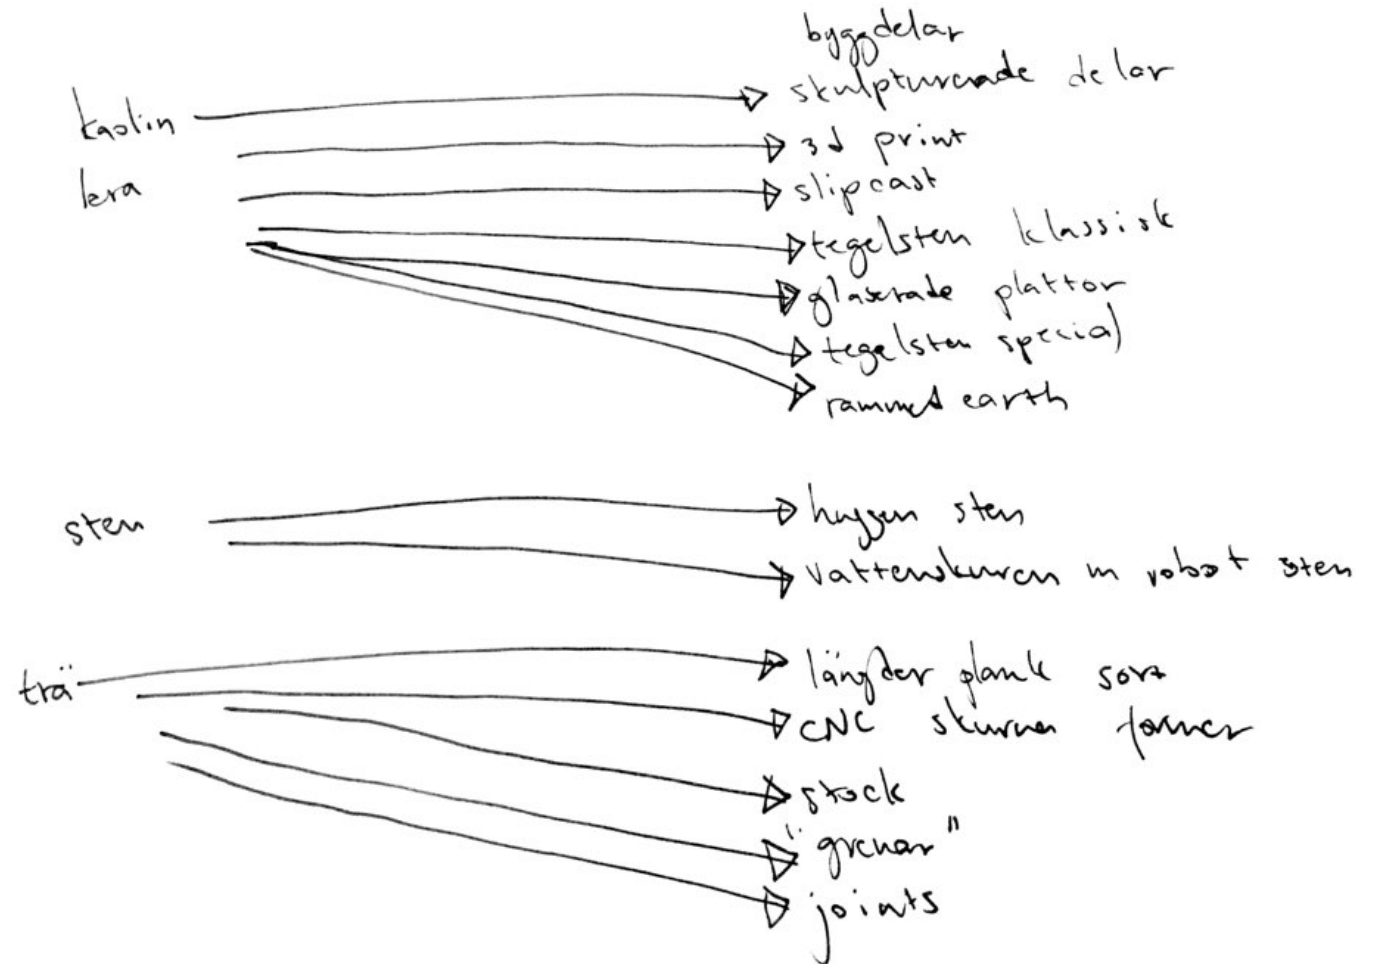 byggdelar
kaolin skulpturerade delar
3d print
lera slipcast
tegelsten klassisk
glaserade plattor
tegelsten special
rammed earth
sten huggen sten
vattenskuren m robot sten
trä längder plank sort
CNC skurna former
stock
"grenar"
joints